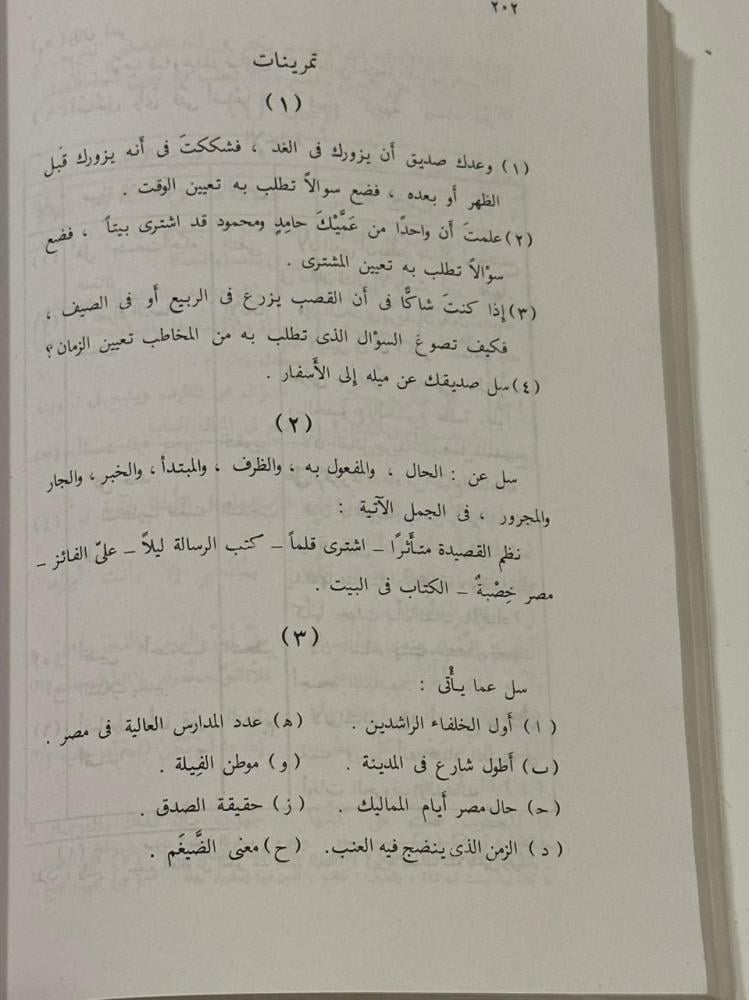 ٢٠٢
تمرينات
(١)
(١) وعدك صديق أن يزورك فى الغد ، فشككتَ فى أنه يزورك قَبل
الظهر أو بعده ، فضع سوالاً تطلب به تعيين الوقت .
(٢) علمتَ أن واحدًا من عَمَّيْكَ حامِدٍ ومحمود قد اشترى بيتاً ، فضع
سؤالاً تطلب به تعيين المشترى .
(٣) إذا كنتَ شاكًّا فى أن القصب يزرع فى الربيع أو فى الصيف ،
فكيف تصوغ السؤال الذى تطلب به من المخاطب تعيين الزمان؟
(٤) سل صديقك عن ميله إلى الأَسفار .
(٢)
سل عن : الحال ، والمفعول به ، والظرف ، والمبتدأ ، والخبر ، والجار
والمجرور ، فى الجمل الآتية :
نظم القصيدة متأَثرًا – اشترى قلماً – كتب الرسالة ليلاً – علىّ الفائز –
مصر خِصْبةٌ – الكتاب فى البيت .
(٣)
سل عما يأْتى :
(ا) أول الخلفاء الراشدين . (ھ) عدد المدارس العالية فى مصر .
(ب) أطول شارع فى المدينة . (و) موطن الفِيلة .
(حـ) حال مصر أيام المماليك . (ز) حقيقة الصدق .
(د) الزمن الذى ينضج فيه العنب. (ح) معنى الضَّيغَم .